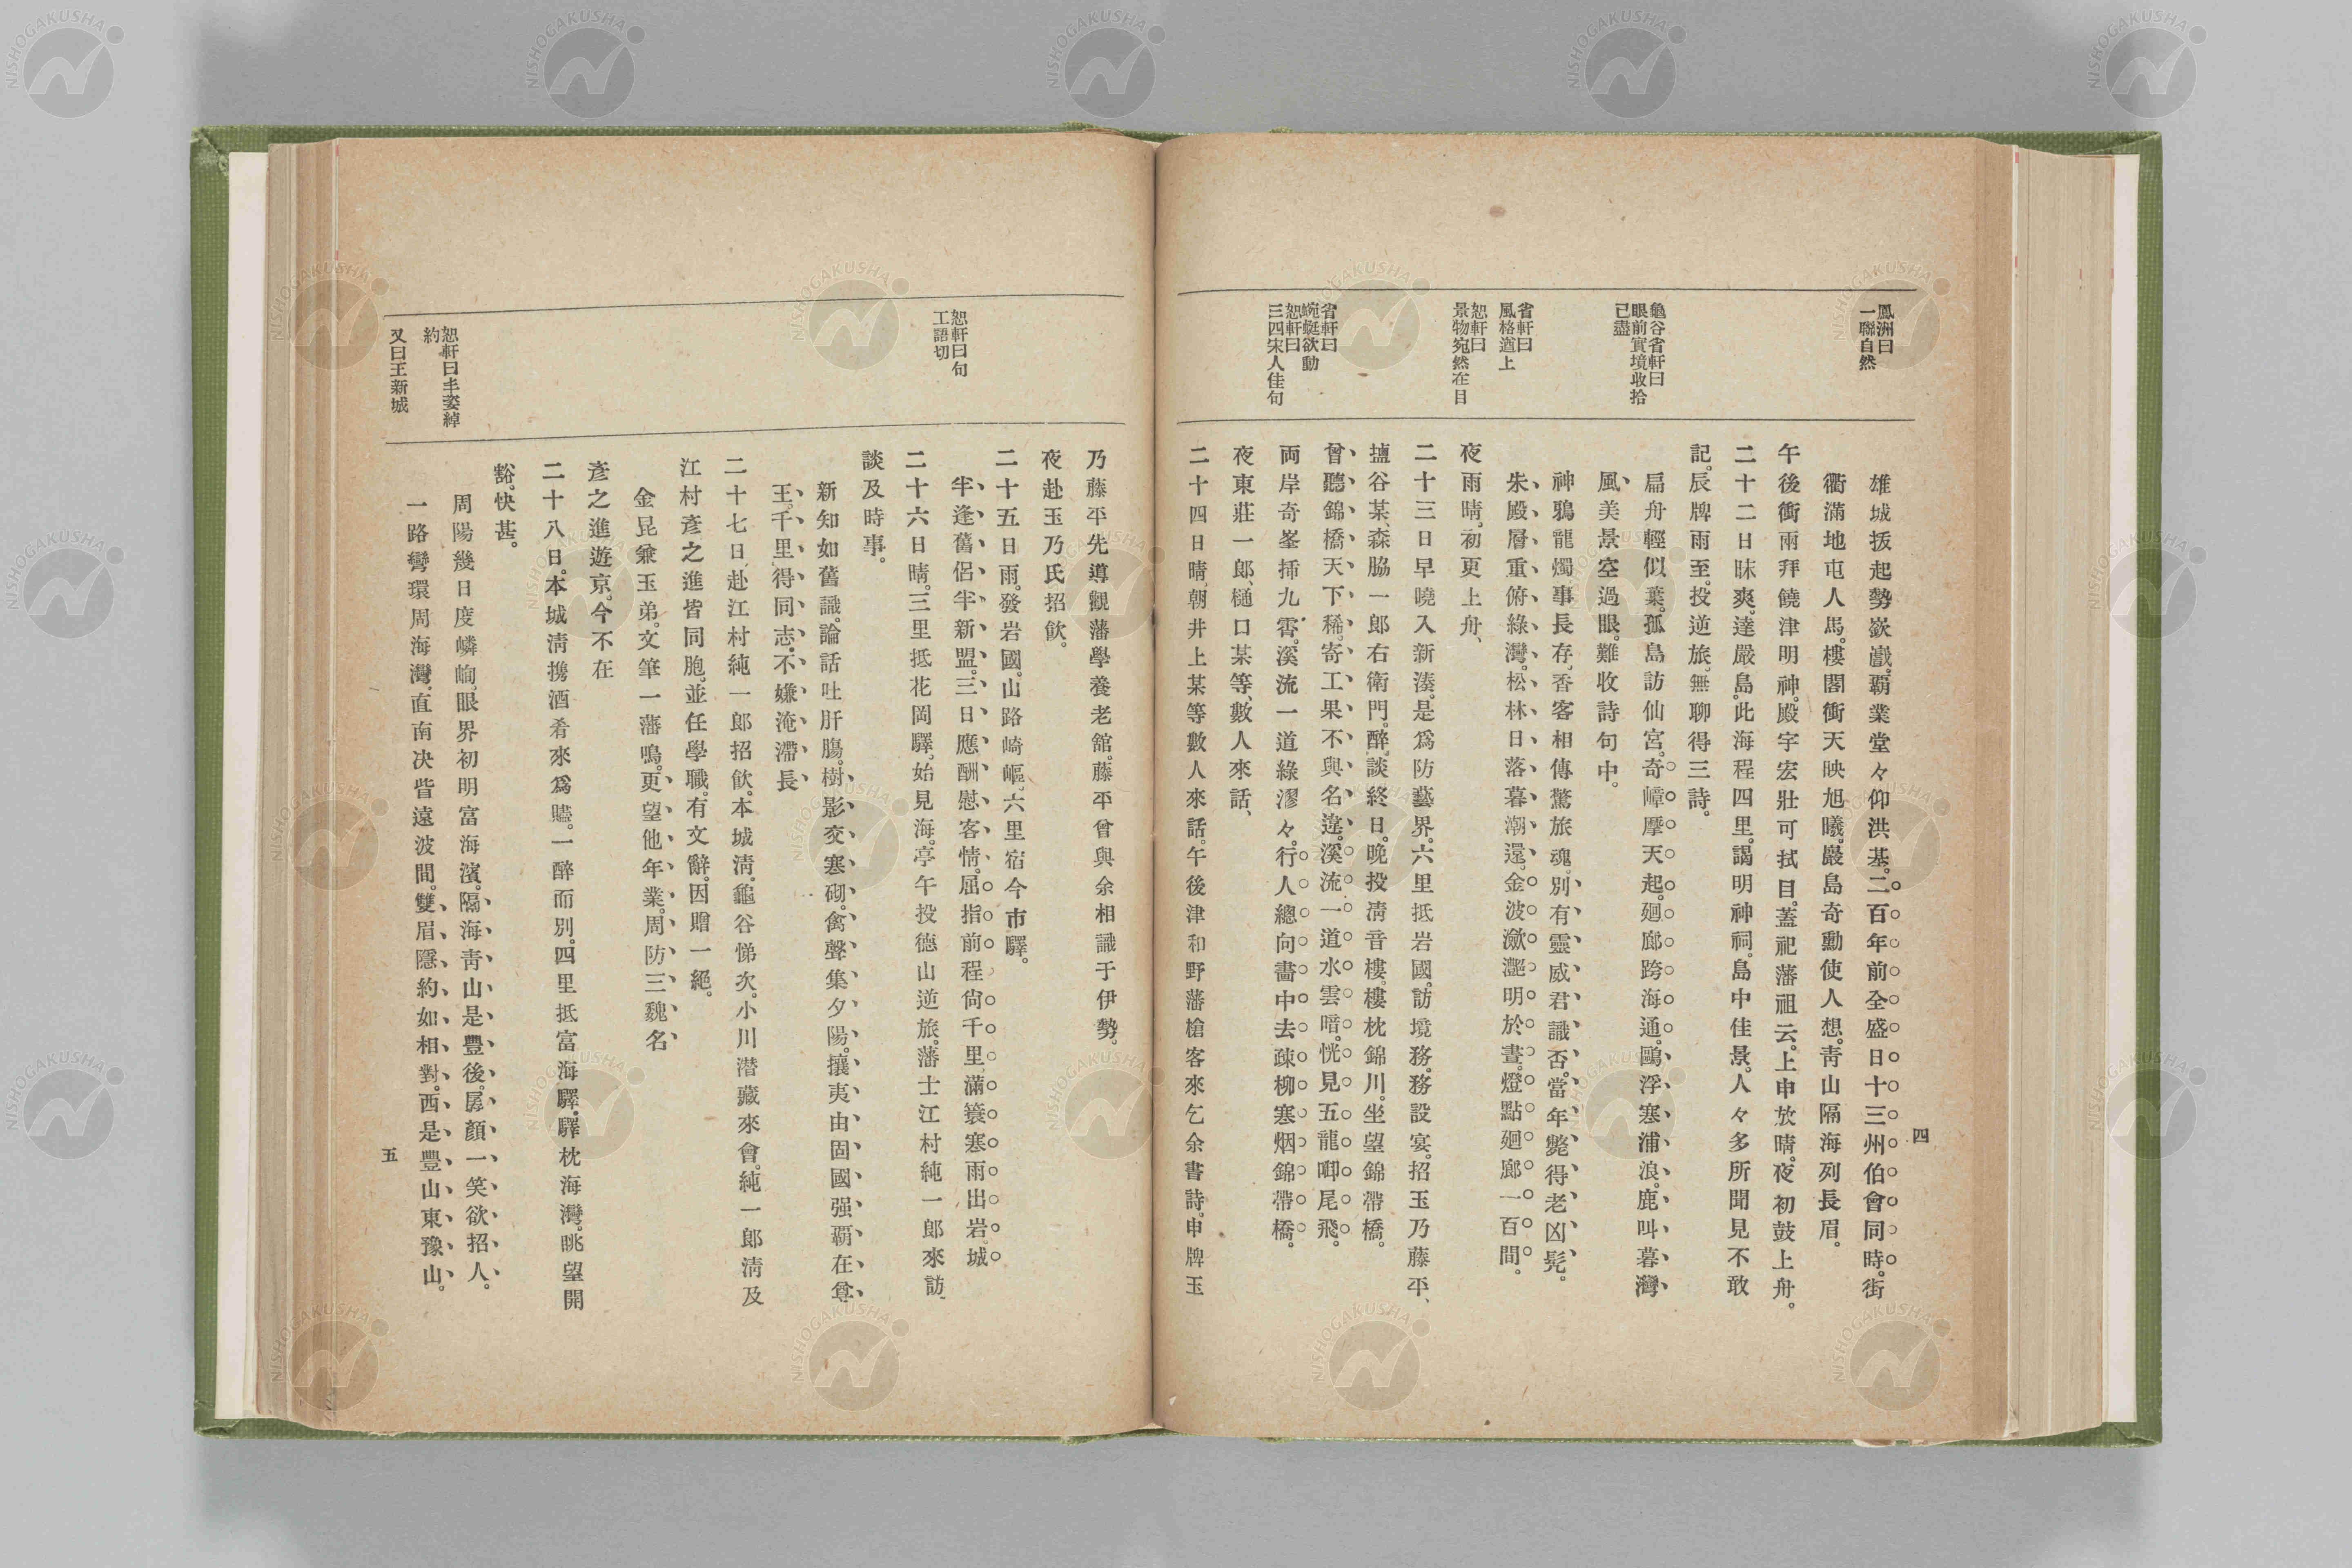 鳳洲曰
一聯自然
龜谷省軒曰
眼前實境收拾
已盡
省軒曰
風格遒上
恕軒曰
景物宛然在目
省軒曰
蜿蜒欲動
恕軒曰
三四宋人佳句
雄城拔起勢嶔巇。霸業堂々仰洪基。二百年前全盛日。十三州伯會同時。街
衢滿地屯人馬。樓閣衝天映旭曦。嚴島奇勳使人想。靑山隔海列長眉。
午後衝雨拜饒津明神。殿宇宏壯可拭目。蓋祀藩祖云。上申放晴。夜初鼓上舟。
二十二日昧爽。達嚴島。此海程四里。謁明神祠。島中佳景。人々多所聞見不敢
記。辰牌雨至。投逆旅。無聊得三詩。
扁舟輕似葉。孤島訪仙宮。奇嶂摩天起。廻廊跨海通。鷗浮寒浦浪。鹿叫暮灣
風。美景空過眼。難收詩句中。
神鴉龍燭事長存。香客相傳驚旅魂。別有靈威君識否。當年斃得老凶髡。
朱殿層重俯綠灣。松林日落暮潮還。金波瀲灔明於晝。燈點廻廊一百間。
夜雨晴。初更上舟、
二十三日早曉入新湊。是爲防藝界。六里抵岩國。訪境務。務設宴。招玉乃藤平、
塩谷某、森脇一郎右衛門。醉談終日。晚投淸音樓。樓枕錦川。坐望錦帶橋。
曾聽錦橋天下稀。寄工果不與名違。溪流一道水雲暗。恍見五龍啣尾飛。
両岸奇峯揷九霄。溪流一道綠漻々。行人總向畵中去。疎柳寒烟錦帶橋。
夜東莊一郎、樋口某等、數人來話、
二十四日晴。朝井上某等數人來話。午後津和野藩槍客來乞余書詩。申牌玉
四
恕軒曰句
工語切
恕軒曰丰姿綽
約
又曰王新城
乃藤平先導觀藩學養老舘。藤平曾與余相識于伊勢。
夜赴玉乃氏招飮。
二十五日雨。發岩國。山路崎嶇。六里宿今市驛。
半逢舊侶半新盟。三日應酬慰客情。屈指前程尙千里。滿簑寒雨出岩城
二十六日晴。三里抵花岡驛。始見海。亭午投德山逆旅。藩士江村純一郎來訪。
談及時事。
新知如舊識。論話吐肝膓。樹影交寒砌。禽聲集夕陽。攘夷由固國。强覇在尊
王。千里得同志。不嫌淹滯長
二十七日、赴江村純一郎招飮。本城淸。龜谷悌次。小川潜藏來會。純一郎淸及
江村彥之進皆同胞。並任學職。有文辭。因贈一絕。
金昆兼玉弟。文筆一藩鳴。更望他年業。周防三魏名
彥之進遊京。今不在
二十八日。本城淸携酒肴來爲贐。一醉而別。四里抵富海驛。驛枕海灣。眺望開
豁。快甚。
周陽幾日度嶙峋。眼界初明富海濱。隔海靑山是豐後。孱顏一笑欲招人。
一路彎環周海灣。直南决眥遠波間。雙眉隱約如相對。西是豐山東豫山。
五